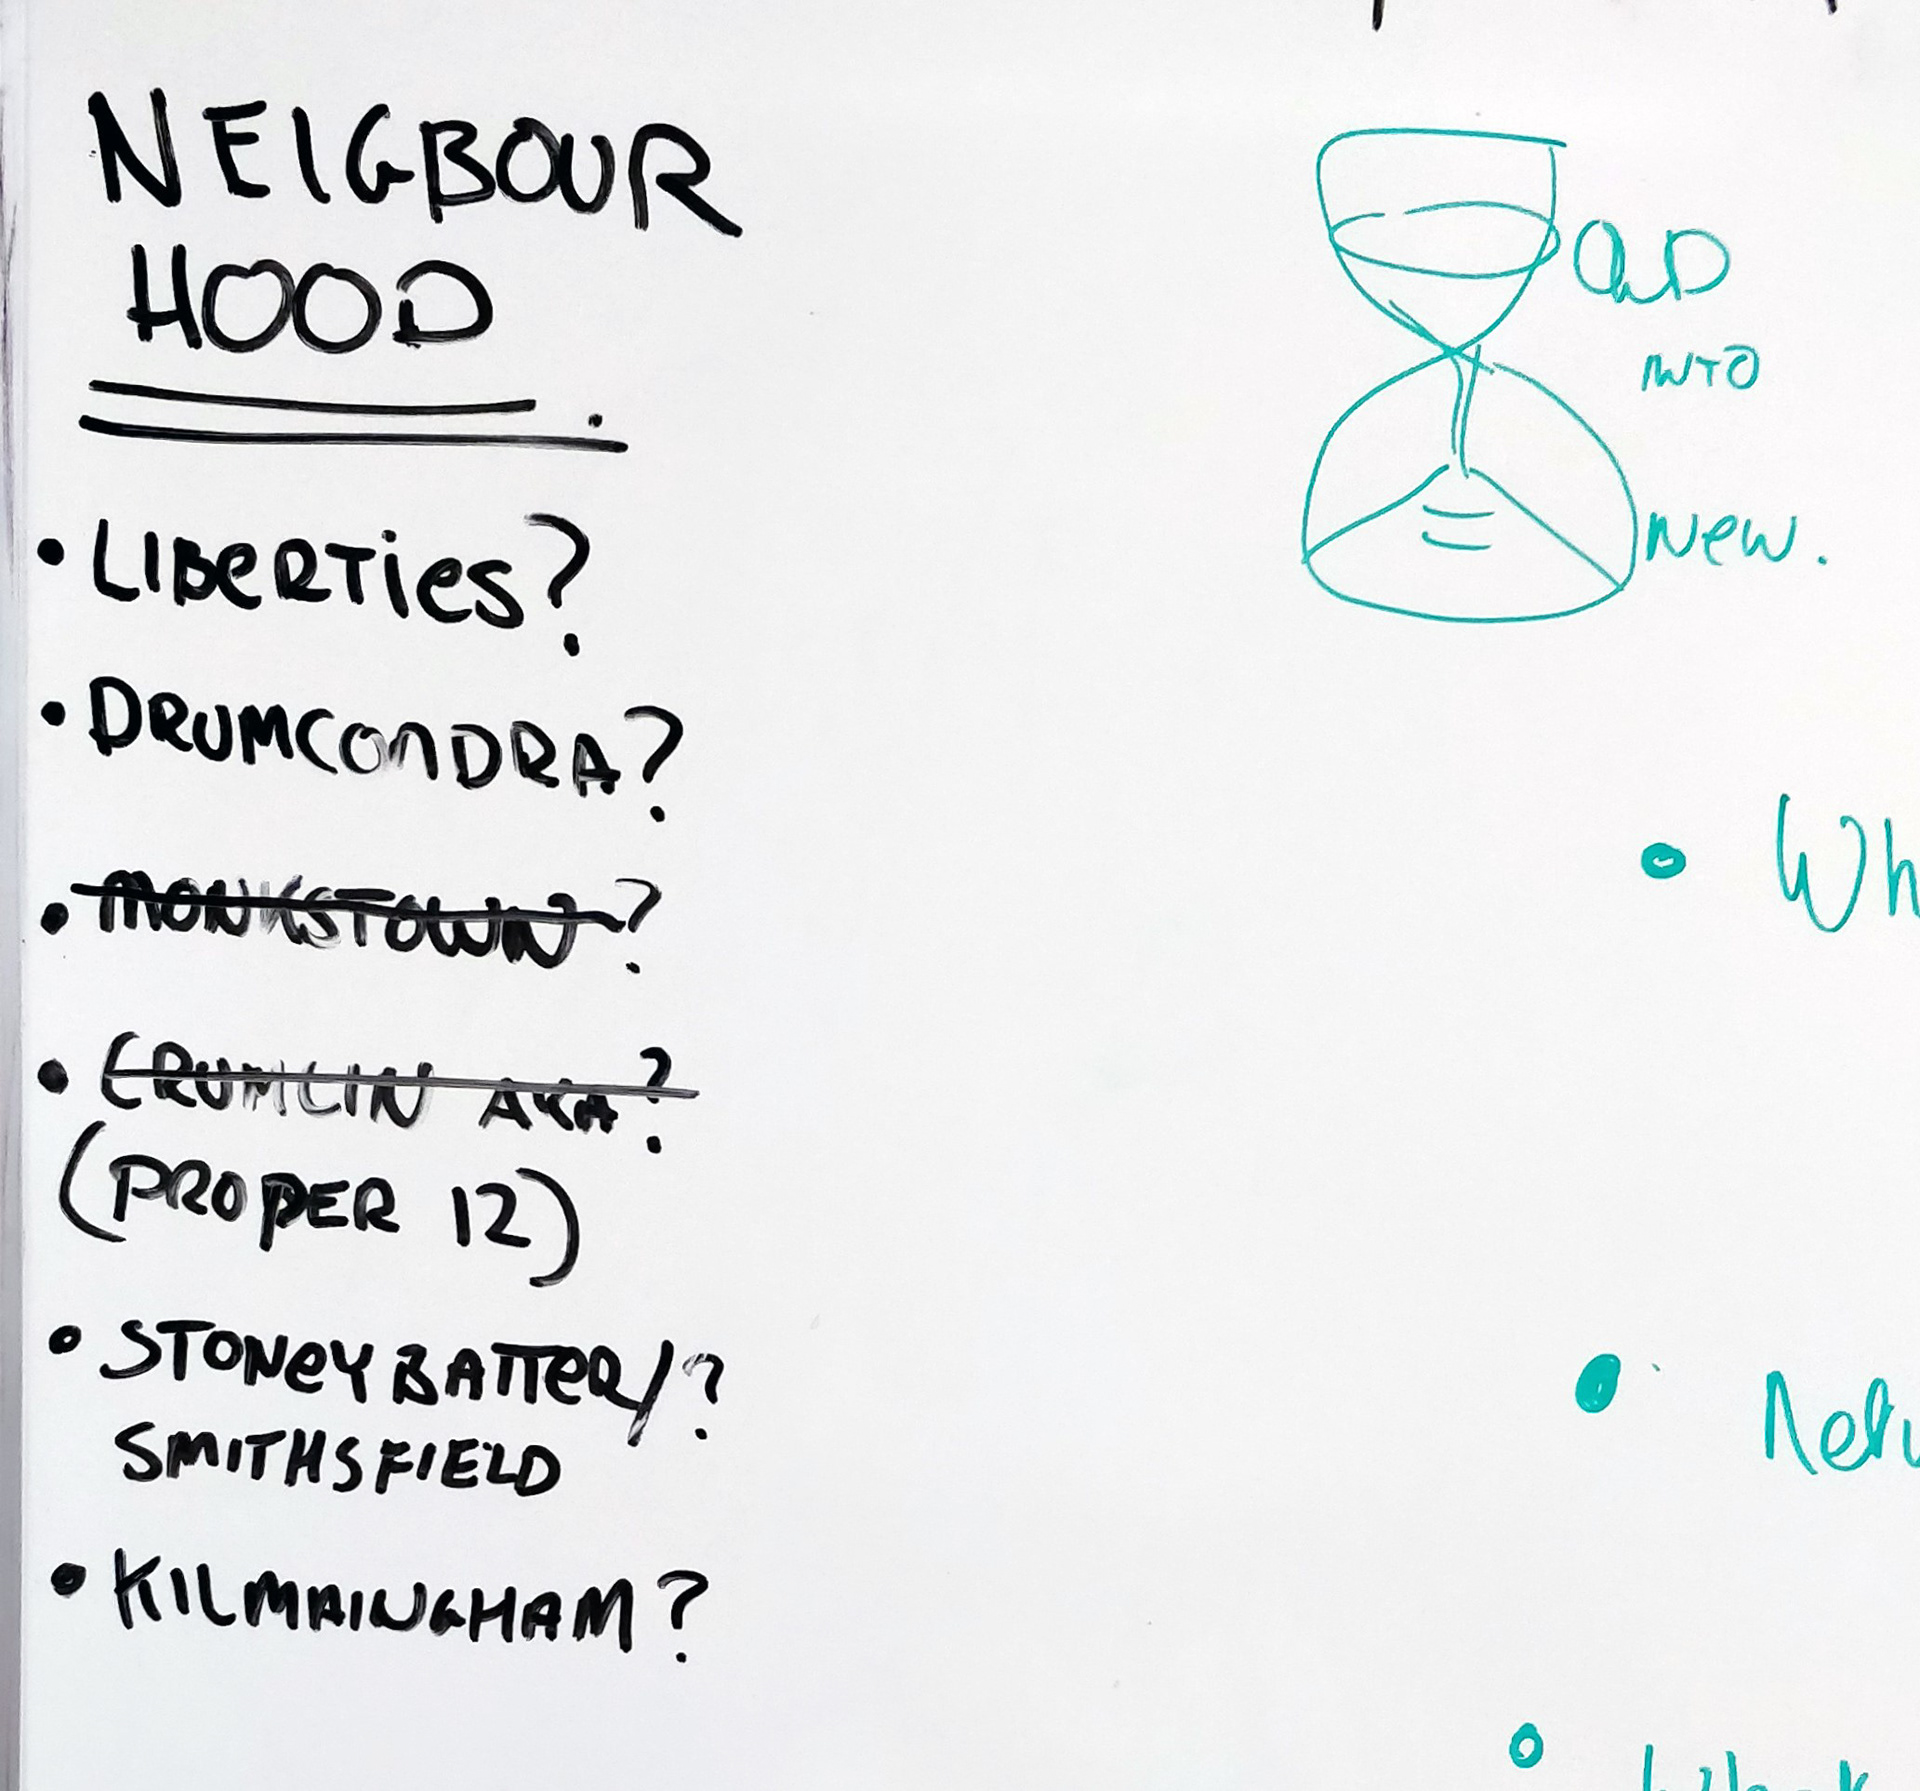 NEIGBOUR
HOOD
• LIBERTies?
• DRUMCONDRA?
• MONKSTOWN?
• CRUMLIN AKA?
(PROPER 12)
• STONEYBATTER/?
SMITHSFIELD
• KILMAINGHAM?
OLD
INTO
New.
• Wh